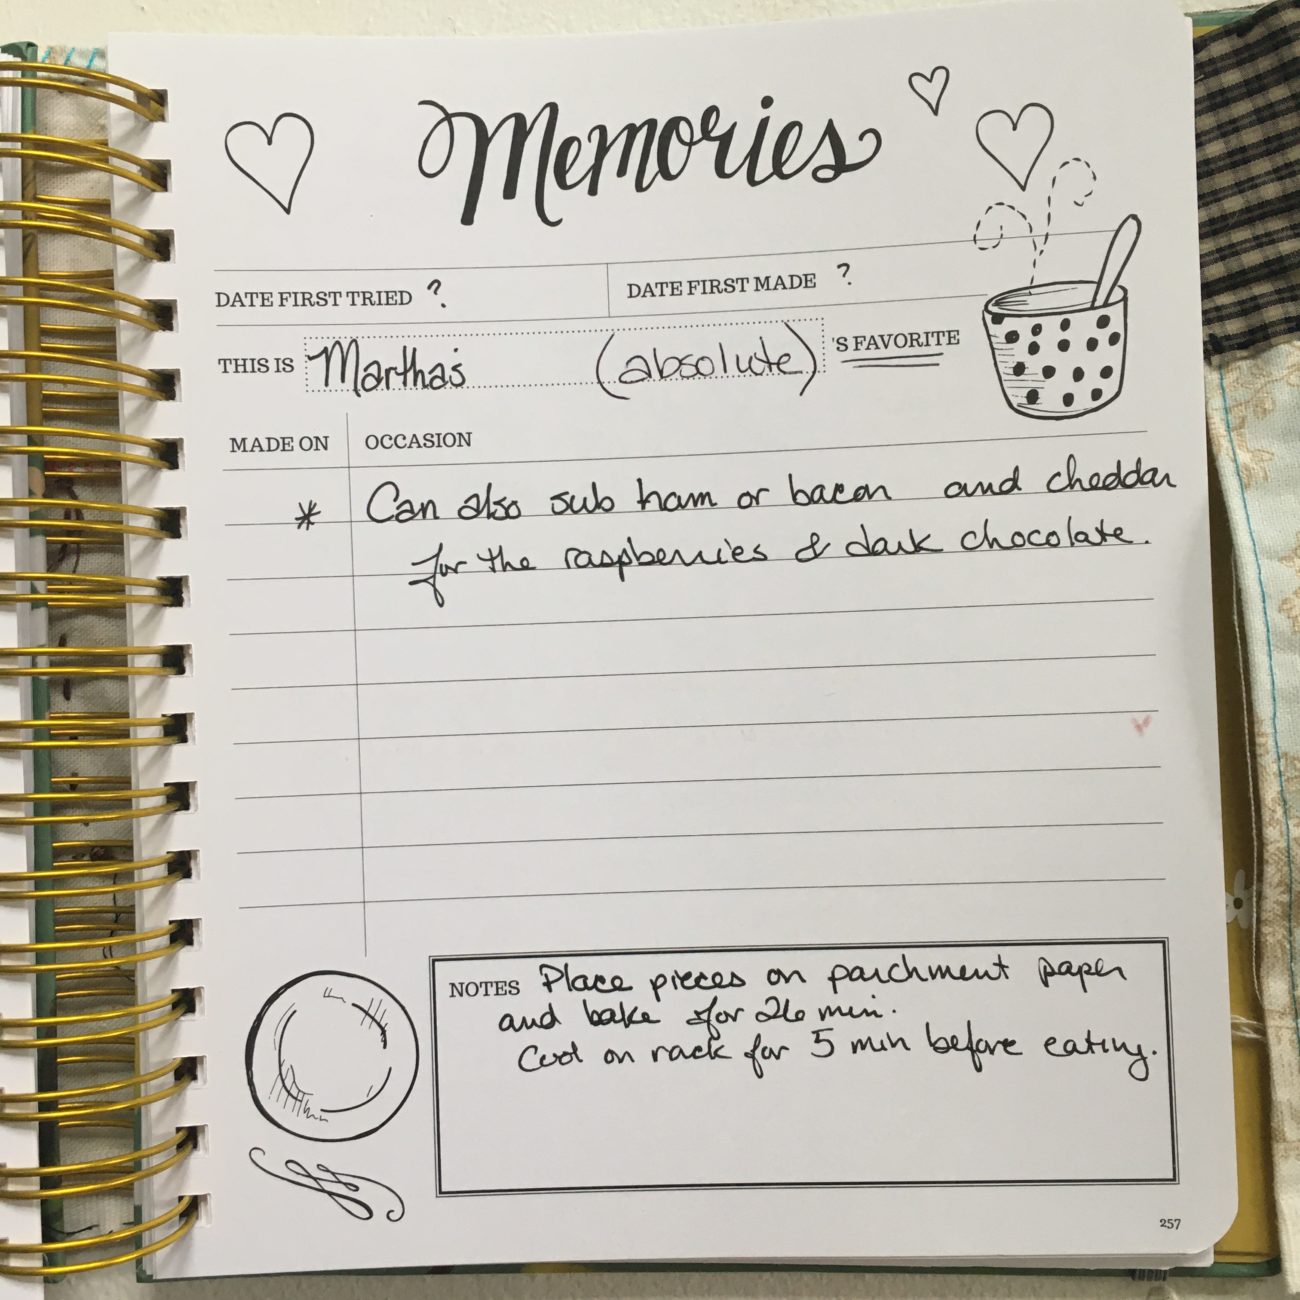 Memories
DATE FIRST TRIED ?
DATE FIRST MADE ?
THIS IS Martha's (absolute) 'S FAVORITE
MADE ON
OCCASION
* Can also sub ham or bacon and cheddar
for the raspberries & dark chocolate.
NOTES Place pieces on parchment paper
and bake for 26 min.
Cool on rack for 5 min before eating.
257